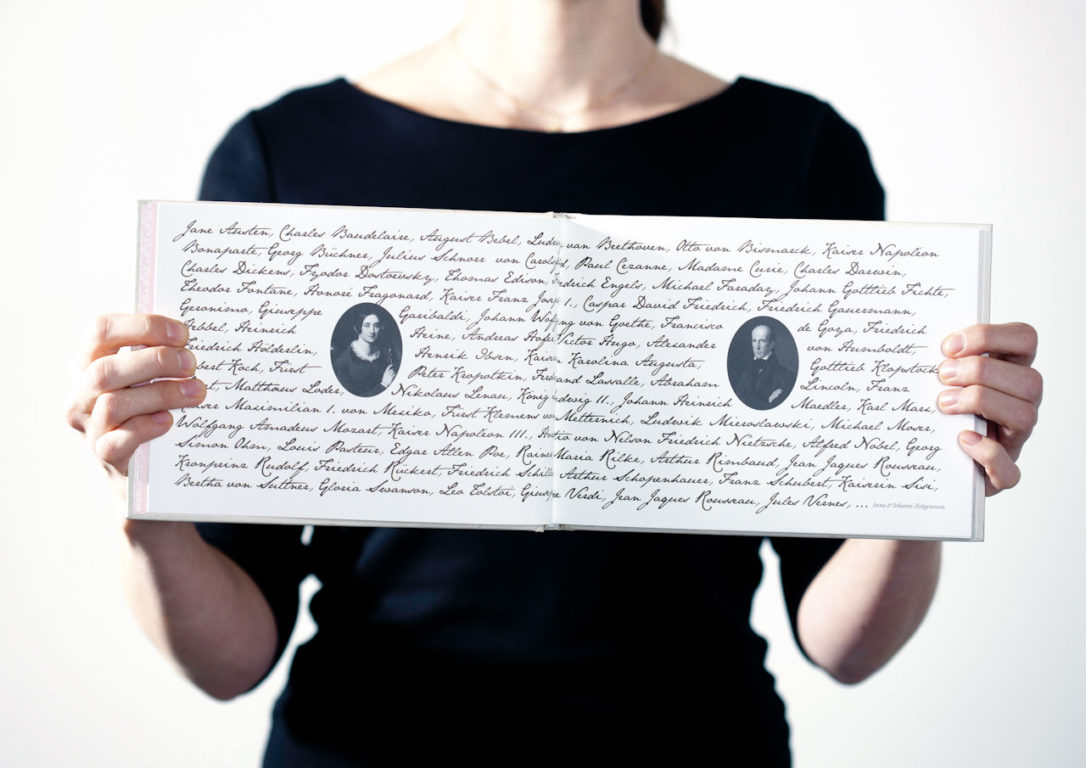 Jane Austen, Charles Baudelaire, August Bebel, Ludwig van Beethoven, Otto von Bismarck, Kaiser Napoleon
Bonaparte, Georg Büchner, Julius Schnorr von Carolsfeld, Paul Cezanne, Madame Curie, Charles Darwin,
Charles Dickens, Fyodor Dostoevsky, Thomas Edison, Friedrich Engels, Michael Faraday, Johann Gottlieb Fichte,
Theodor Fontane, Honoré Fragonard, Kaiser Franz Josef I., Caspar David Friedrich, Friedrich Gauermann,
Geronimo, Giuseppe Garibaldi, Johann Wolfgang von Goethe, Francisco de Goya, Friedrich
Hebbel, Heinrich Heine, Andreas Hofer, Victor Hugo, Alexander von Humboldt,
Friedrich Hölderlin, Henrik Ibsen, Kaiserin Karolina Augusta, Gottlieb Klopstock,
Robert Koch, Fürst Peter Kropotkin, Ferdinand Lassalle, Abraham Lincoln, Franz
Matthäus Loder, Nikolaus Lenau, König Ludwig II., Johann Heinrich Maedler, Karl Marx,
Kaiser Maximilian I. von Mexiko, Fürst Klemens von Metternich, Ludwik Mieroslawski, Michael Moser,
Wolfgang Amadeus Mozart, Kaiser Napoleon III., Horatio von Nelson Friedrich Nietzsche, Alfred Nobel, Georg
Simon Ohm, Louis Pasteur, Edgar Allen Poe, Rainer Maria Rilke, Arthur Rimbaud, Jean Jaques Rousseau,
Kronprinz Rudolf, Friedrich Rückert Friedrich Schiller Arthur Schopenhauer, Franz Schubert, Kaiserin Sisi,
Bertha von Suttner, Gloria Swanson, Leo Tolstoi, Giuseppe Verdi, Jean Jaques Rousseau, Jules Vernes, ... Anna & Johanns Zeitgenossen